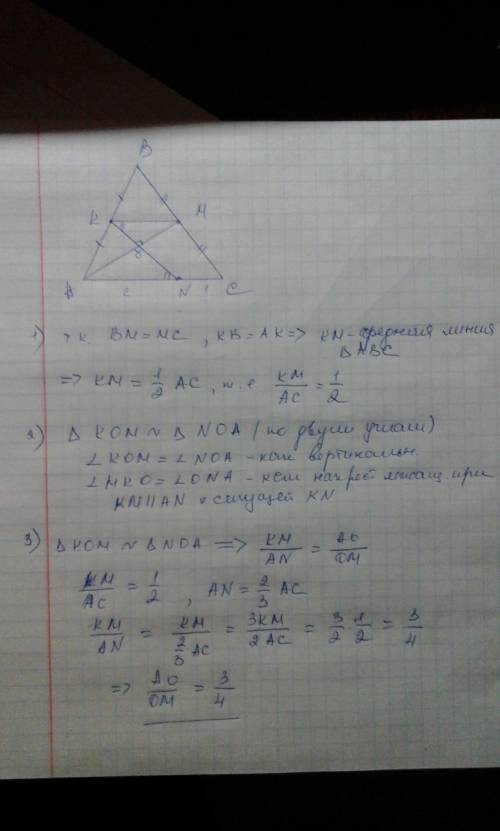 B
K M
O
A 2 N 1 C
1) т.к. BM = MC, KB = AK => KM - средняя линия
ΔABC
=> KM = 1/2 AC, т.е. KM/AC = 1/2
2) Δ KOM ~ Δ NOA (по двум углам)
∠KOM = ∠NOA - как вертикальн.
∠MKO = ∠ONA - как накрест лежащ. при
KM || AN и секущей KN
3) ΔKOM ~ ΔNOA => KM/AN = AO/OM
KM/AC = 1/2, AN = 2/3 AC
KM/AN = KM/(2/3 AC) = 3KM/2AC = 3/2 · 1/2 = 3/4
=> AO/OM = 3/4